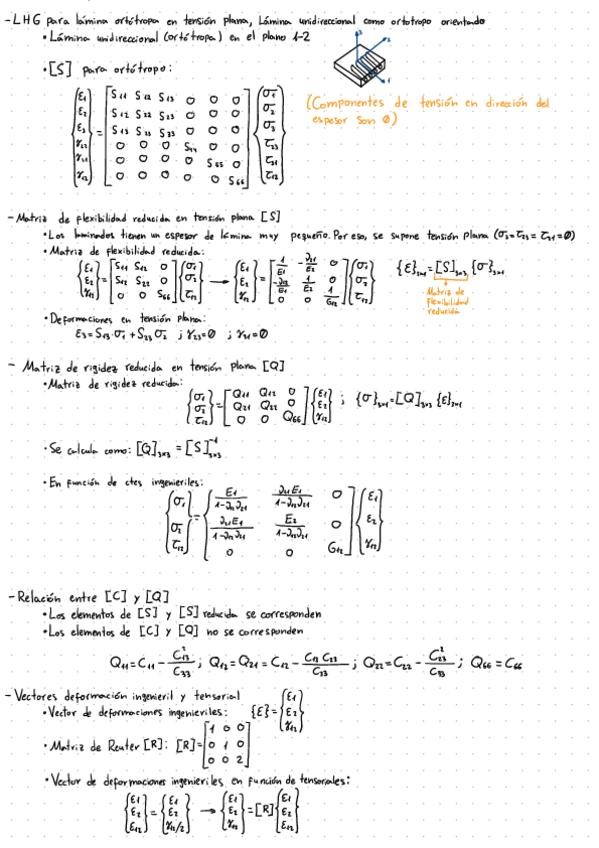 - LHG para lámina ortótropa en tensión plana, Lámina unidireccional como ortotropo orientado
• Lámina unidireccional (ortótropa) en el plano 1-2
• [S] para ortótropo:
(Componentes de tensión en dirección del espesor son 0)
{ε1 ε2 ε3 γ23 γ31 γ12} = [S11 S12 S13 0 0 0; S12 S22 S23 0 0 0; S13 S23 S33 0 0 0; 0 0 0 S44 0 0; 0 0 0 0 S55 0; 0 0 0 0 0 S66] {σ1 σ2 σ3 τ23 τ31 τ12}
- Matriz de flexibilidad reducida en tensión plana [S]
• Los laminados tienen un espesor de lámina muy pequeño. Por eso, se supone tensión plana (σ3=τ23=τ31=0)
• Matriz de flexibilidad reducida:
{ε1 ε2 γ12} = [S11 S12 0; S12 S22 0; 0 0 S66] {σ1 σ2 τ12} → {ε1 ε2 γ12} = [1/E1 -ν21/E2 0; -ν12/E1 1/E2 0; 0 0 1/G12] {σ1 σ2 τ12} {ε}3x1=[S]3x3 {σ}3x1
Matriz de flexibilidad reducida
• Deformaciones en tensión plana:
ε3=S13·σ1+S23σ2 ; γ23=0 ; γ31=0
- Matriz de rigidez reducida en tensión plana [Q]
• Matriz de rigidez reducida:
{σ1 σ2 τ12} = [Q11 Q12 0; Q21 Q22 0; 0 0 Q66] {ε1 ε2 γ12} ; {σ}3x1=[Q]3x3 {ε}3x1
• Se calcula como: [Q]3x3 = [S]⁻¹3x3
• En función de ctes ingenieriles:
{σ1 σ2 τ12} = [E1/(1-ν12ν21) ν21E1/(1-ν12ν21) 0; ν21E1/(1-ν12ν21) E2/(1-ν12ν21) 0; 0 0 G12] {ε1 ε2 γ12}
- Relación entre [C] y [Q]
• Los elementos de [S] y [S] reducida se corresponden
• Los elementos de [C] y [Q] no se corresponden
Q11=C11 - C13²/C33 ; Q12=Q21=C12 - C13 C23/C33 ; Q22=C22 - C23²/C33 ; Q66=C66
- Vectores deformación ingenieril y tensorial
• Vector de deformaciones ingenieriles: {ε}={ε1 ε2 γ12}
• Matriz de Reuter [R]: [R]=[1 0 0; 0 1 0; 0 0 2]
• Vector de deformaciones ingenieriles en función de tensoriales:
{ε1 ε2 ε12} = {ε1 ε2 γ12/2} → {ε1 ε2 γ12} = [R] {ε1 ε2 ε12}